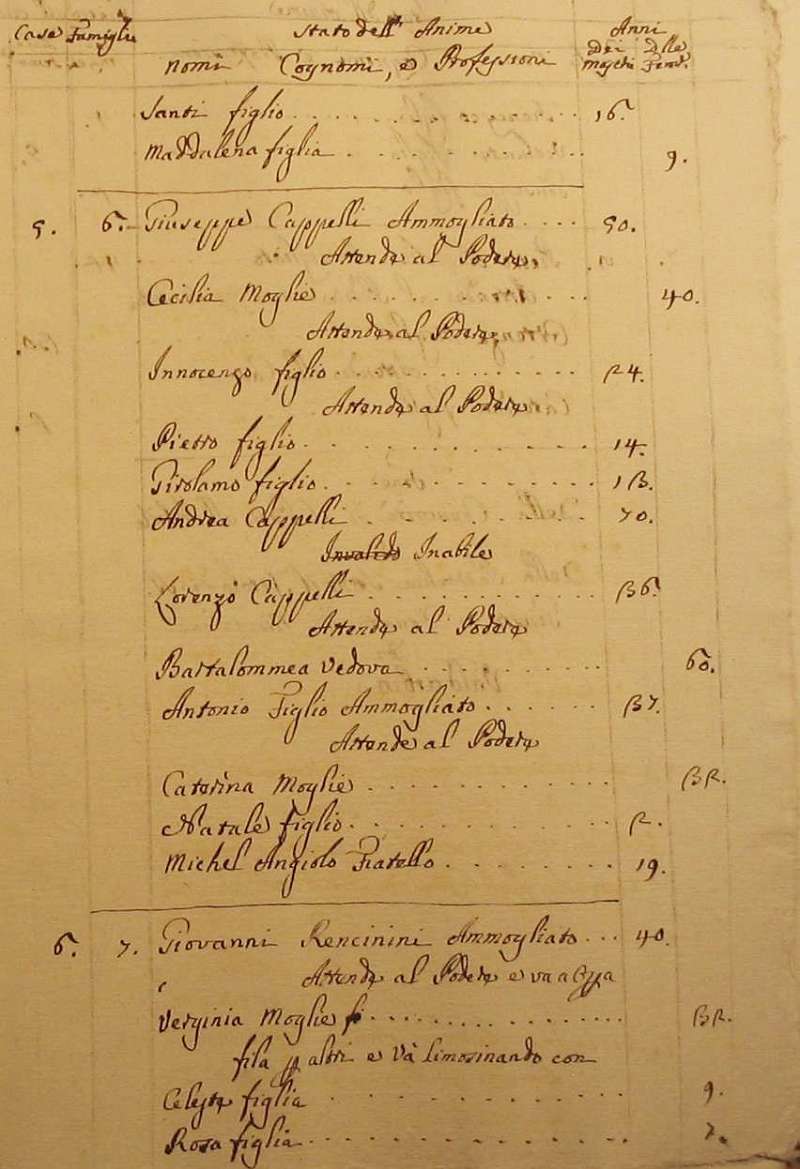 Case Famiglie Stato dell' Anime Anni
Nomi Cognomi, e Professioni Dei Maschi Delle Fem.
Santi figlio 16.
Maddalena figlia 9.
5. 6. Giuseppe Cappelli Ammogliato 50.
Attende al Podere
Cecilia Moglie 40.
Attende al Podere
Innocenzo figlio 24.
Attende al Podere
Pietro figlio 14.
Girolamo figlio 13.
Andrea Cappelli 70.
Invalido Inabile
Lorenzo Cappelli 36.
Attende al Podere
Bartalommea Vedova 60.
Antonio Figlio Ammogliato 37.
Attende al Podere
Caterina Moglie 32.
Natale figlio 2.
Michel Angiolo Fratello 19.
6. 7. Giovanni Rencinini Ammogliato 40.
Attende al Podere e va a
Verginia Moglie 32.
fila p altri e và limosinando con
Celeste figlia 9.
Rosa figlia 7.